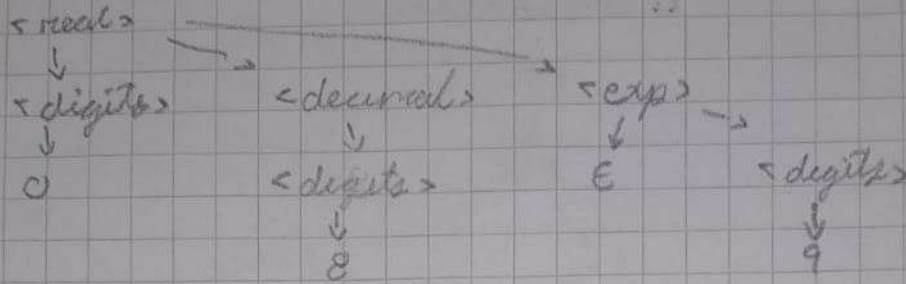 <real>
<digits> <decimal> <exp>
0 <digits> E <digits>
8 9